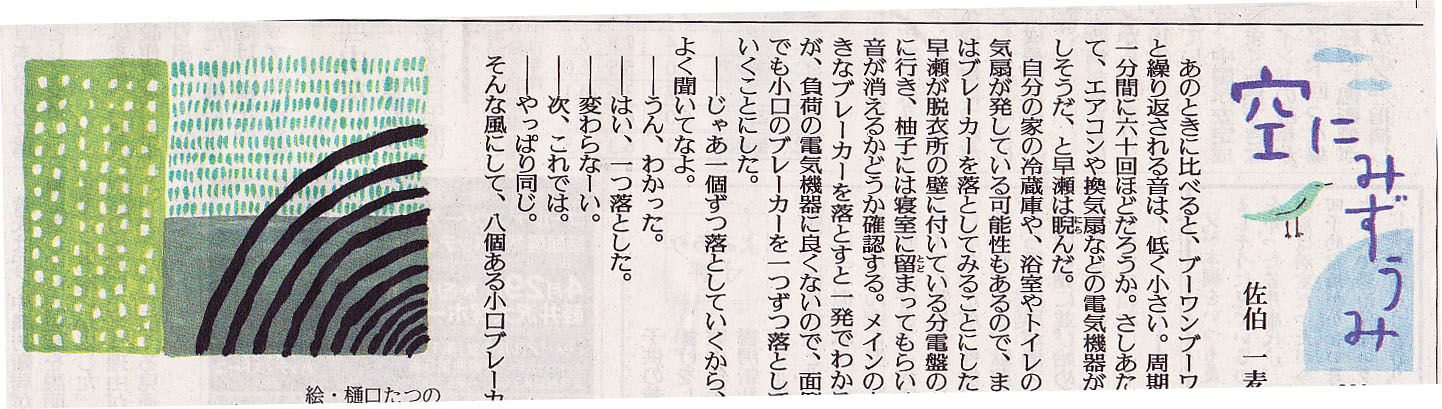 空にみずうみ
佐伯 一麦
あのときに比べると、ブーワンブーワ
と繰り返される音は、低く小さい。周期
一分間に六十回ほどだろうか。さしあた
て、エアコンや換気扇などの電気機器が
しそうだ、と早瀬は睨んだ。
自分の家の冷蔵庫や、浴室やトイレの
気扇が発している可能性もあるので、ま
はブレーカーを落としてみることにした
早瀬が脱衣所の壁に付いている分電盤の
に行き、柚子には寝室に留まってもらい
音が消えるかどうか確認する。メインの
きなブレーカーを落とすと一発でわかる
が、負荷の電気機器に良くないので、面倒
でも小口のブレーカーを一つずつ落として
いくことにした。
――じゃあ一個ずつ落としていくから、
よく聞いてなよ。
――うん、わかった。
――はい、一つ落とした。
――変わらなーい。
――次、これでは。
――やっぱり同じ。
そんな風にして、八個ある小口ブレーカ
絵・樋口たつの